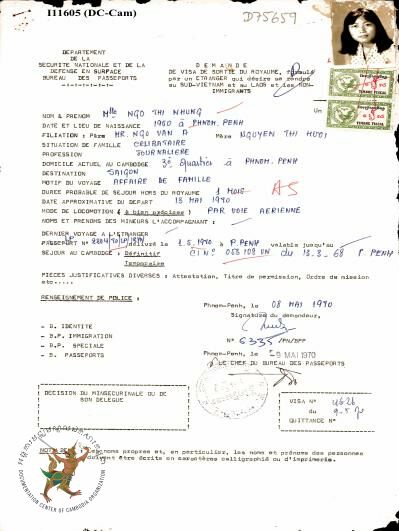 I11605 (DC-Cam)
D75659
DEPARTEMENT
DE LA
SECURITE NATIONALE ET DE LA
DEFENSE EN SURFACE
BUREAU DES PASSEPORTS
DEMANDE
DE VISA DE SORTIE DU ROYAUME, formulé
par un ETRANGER qui désire se rendre
au SUD-VIETNAM et au LAOS et les NON-
IMMIGRANTS
NOM & PRENOM Mlle NGO THI NHUNG Un
DATE ET LIEU DE NAISSANCE 1950 à PHNOM.PENH
FILIATION : Père MR. NGO VAN A Mère NGUYEN THI MUOI
SITUATION DE FAMILLE CELIBATAIRE
PROFESSION JOURNALIERE
DOMICILE ACTUEL AU CAMBODGE 3è Quartier à PHNOM.PENH
DESTINATION SAIGON
MOTIF DU VOYAGE AFFAIRE DE FAMILLE
DUREE PROBABLE DE SEJOUR HORS DU ROYAUME 1 MOIS AS
DATE APPROXIMATIVE DU DEPART 13 MAI 1970
MODE DE LOCOMOTION ( à bien préciser ) PAR VOIE AERIENNE
NOMS ET PRENOMS DES MINEURS L'ACCOMPAGNANT :
DERNIER VOYAGE A L'ETRANGER
PASSEPORT N° délivré le 2.5.1970 à P.PENH valable jusqu'au
SEJOUR AU CAMBODGE : Définitif CI N° 063108 VN du 13.3.68 P.PENH
Temporaire
PIECES JUSTIFICATIVES DIVERSES : Attestation, Titre de permission, Ordre de mission
etc.....
RENSEIGNEMENT DE POLICE :
Phnom-Penh, le 08 MAI 1970
Signature du demandeur,
N° 6335 /PN/BPP
- B. IDENTITE
- B.P. IMMIGRATION
- B.P. SPECIALE
- B. PASSEPORTS
Phnom-Penh, le 9 MAI 1970
LE CHEF DU BUREAU DES PASSEPORTS
DECISION DU MINSECURINALE OU DE
SON DELEGUE
VISA N° 4626
du 9-5-70
QUITTANCE N°
NOTA : Les noms propres et, en particulier, les noms et prénoms des personnes
doivent être écrits en caractères calligraphié ou d'imprimerie.
DOCUMENTATION CENTER OF CAMBODIA ORGANIZATION